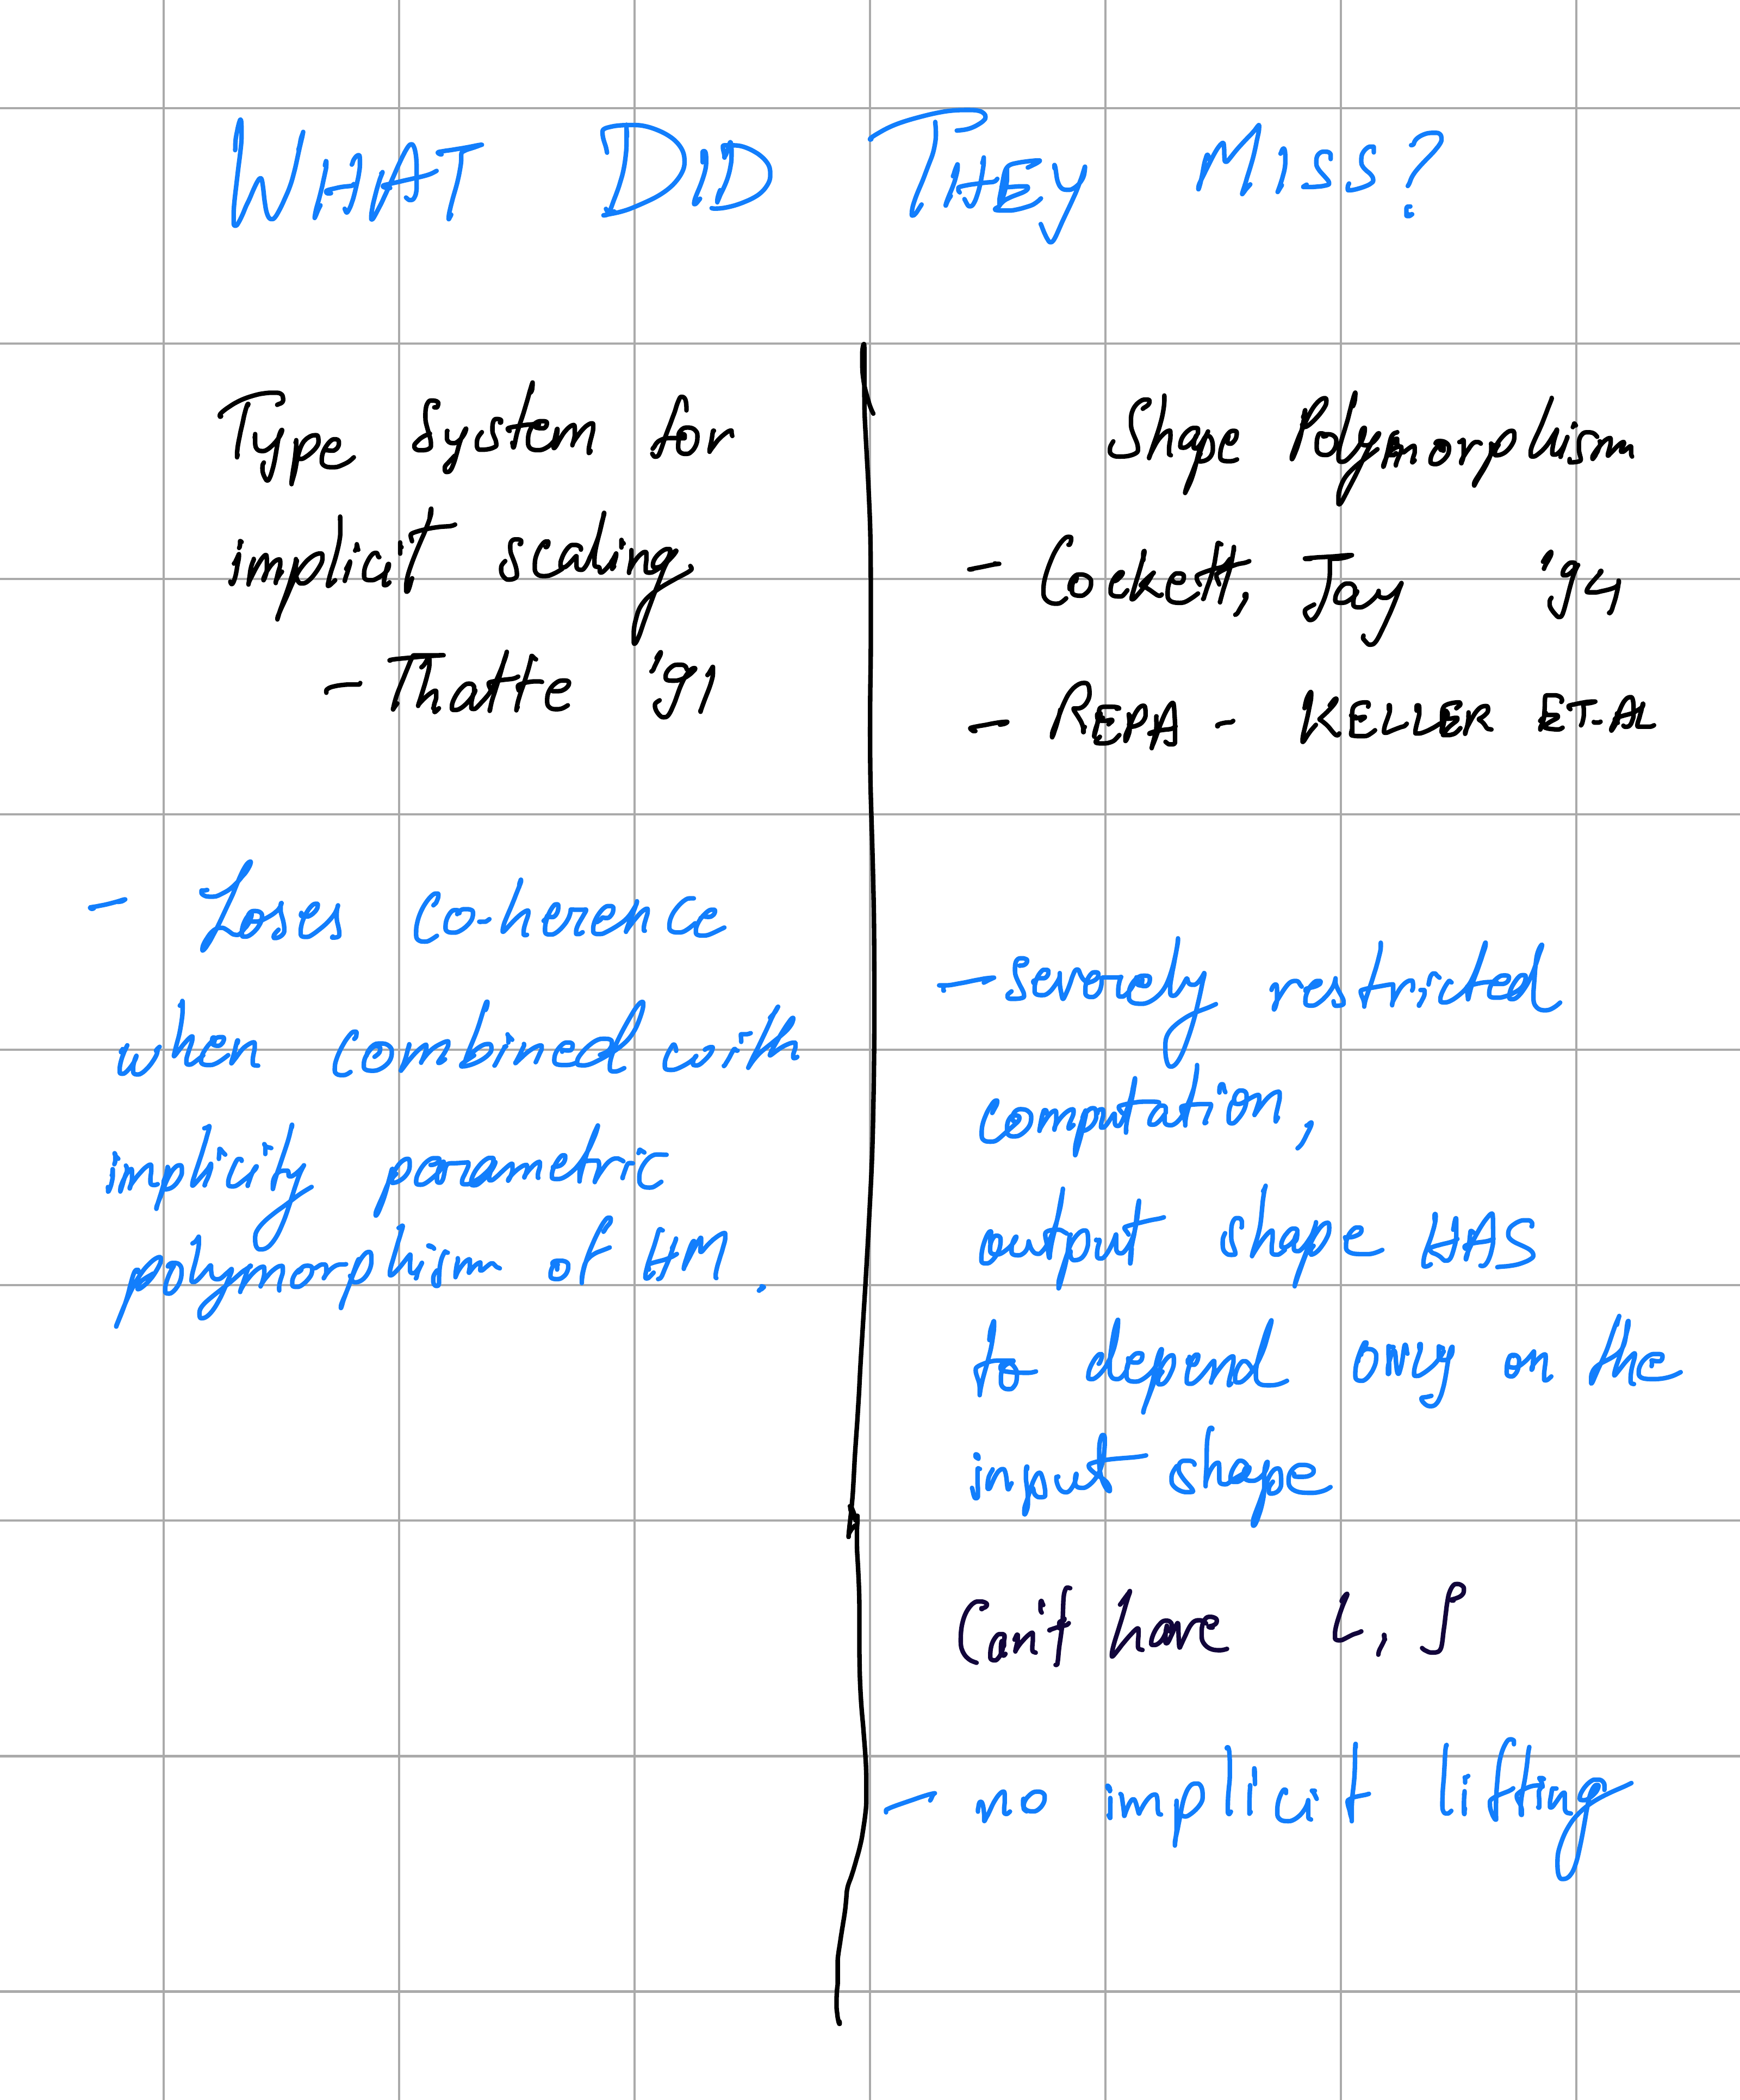 WHAT DID THEY MISS?
Type System for
implicit scaling
- Thatte '91
- Loses coherence
when combined with
implicity parametric
polymorphism of HM.
Shape Polymorphism
- Cockett, Jay '94
- REPA - KELLER ET-AL
- Severely restricted
computation,
output shape HAS
to depend only on the
input shape
Can't have ι, ρ
- no implicit lifting